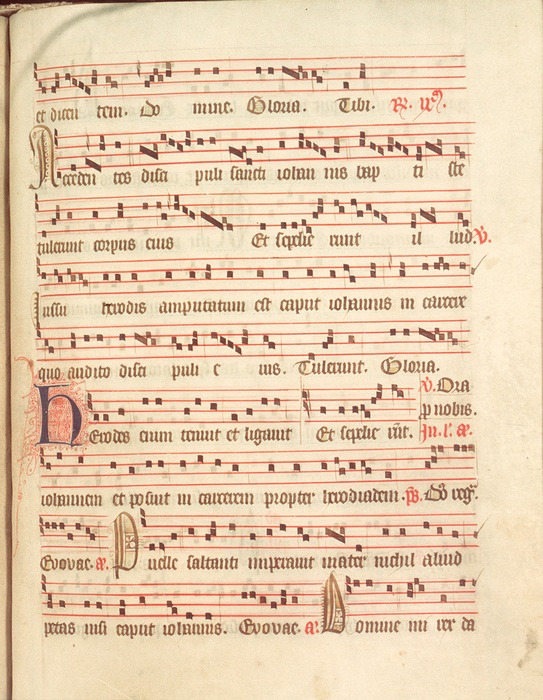 et dicen tem. Do mine. Gloria. Tibi. R. ix.
Acceden tes disci puli sancti iohan nis bap ti ste
tulerunt corpus eius Et sepelie runt il lud. V.
Iussu herodis amputatum est caput iohannis in carcere
quo audito disci puli e ius. Tulerunt. Gloria.
V. Ora
p nobis.
Herodes enim tenuit et ligavit Et sepelie rūt. In. l. a.
iohannem et posuit in carcerem propter herodiadem. ps.
Evovae. a. Puelle saltanti imperavit mater nichil aliud
petas nisi caput iohannis. Evovae. a. Domine mi rex da